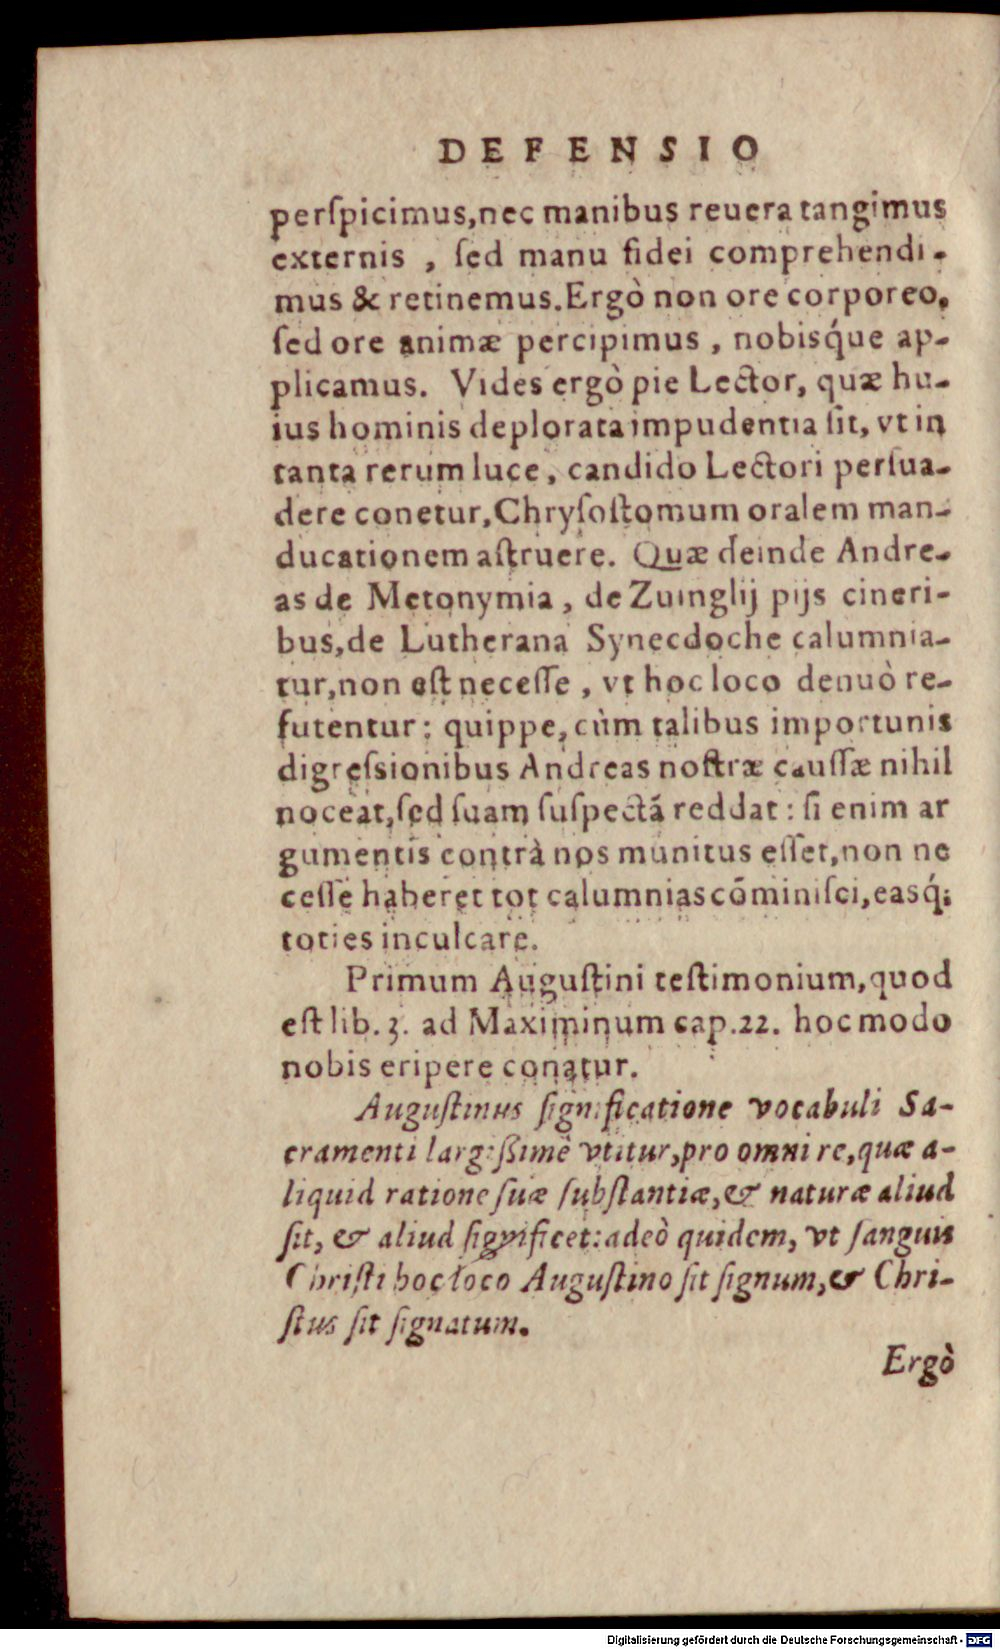 DEFENSIO
perſpicimus,nec manibus reuera tangimus
externis , ſed manu fidei comprehendi-
mus & retinemus.Ergò non ore corporeo,
ſed ore animæ percipimus , nobisq́ue ap-
plicamus. Vides ergò pie Lector, quæ hu-
ius hominis deplorata impudentia ſit, vt in
tanta rerum luce, candido Lectori perſua-
dere conetur,Chryſoſtomum oralem man-
ducationem aſtruere. Quæ deinde Andre-
as de Metonymia , de Zuinglij pijs cineri-
bus,de Lutherana Synecdoche calumnia-
tur,non eſt neceſſe , vt hoc loco denuò re-
futentur: quippe, cùm talibus importunis
digreſsionibus Andreas noſtræ cauſſæ nihil
noceat,ſed ſuam ſuſpectā reddat: ſi enim ar
gumentis contrà nos munitus eſſet,non ne
ceſſe haberet tot calumnias cōminiſci,easq́;
toties inculcare.
Primum Auguſtini teſtimonium,quod
eſt lib. 3. ad Maximinum cap.22. hoc modo
nobis eripere conatur.
Auguſtinus ſignificatione vocabuli Sa-
cramenti largiſſimè vtitur,pro omni re,quæ a-
liquid ratione ſuæ ſubſtantiæ,& naturæ aliud
ſit, & aliud ſignificet:adeò quidem, vt ſanguis
Chriſti hoc loco Auguſtino ſit ſignum,& Chri-
ſtus ſit ſignatum.
Ergò
Digitalisierung gefördert durch die Deutsche Forschungsgemeinschaft - DFG